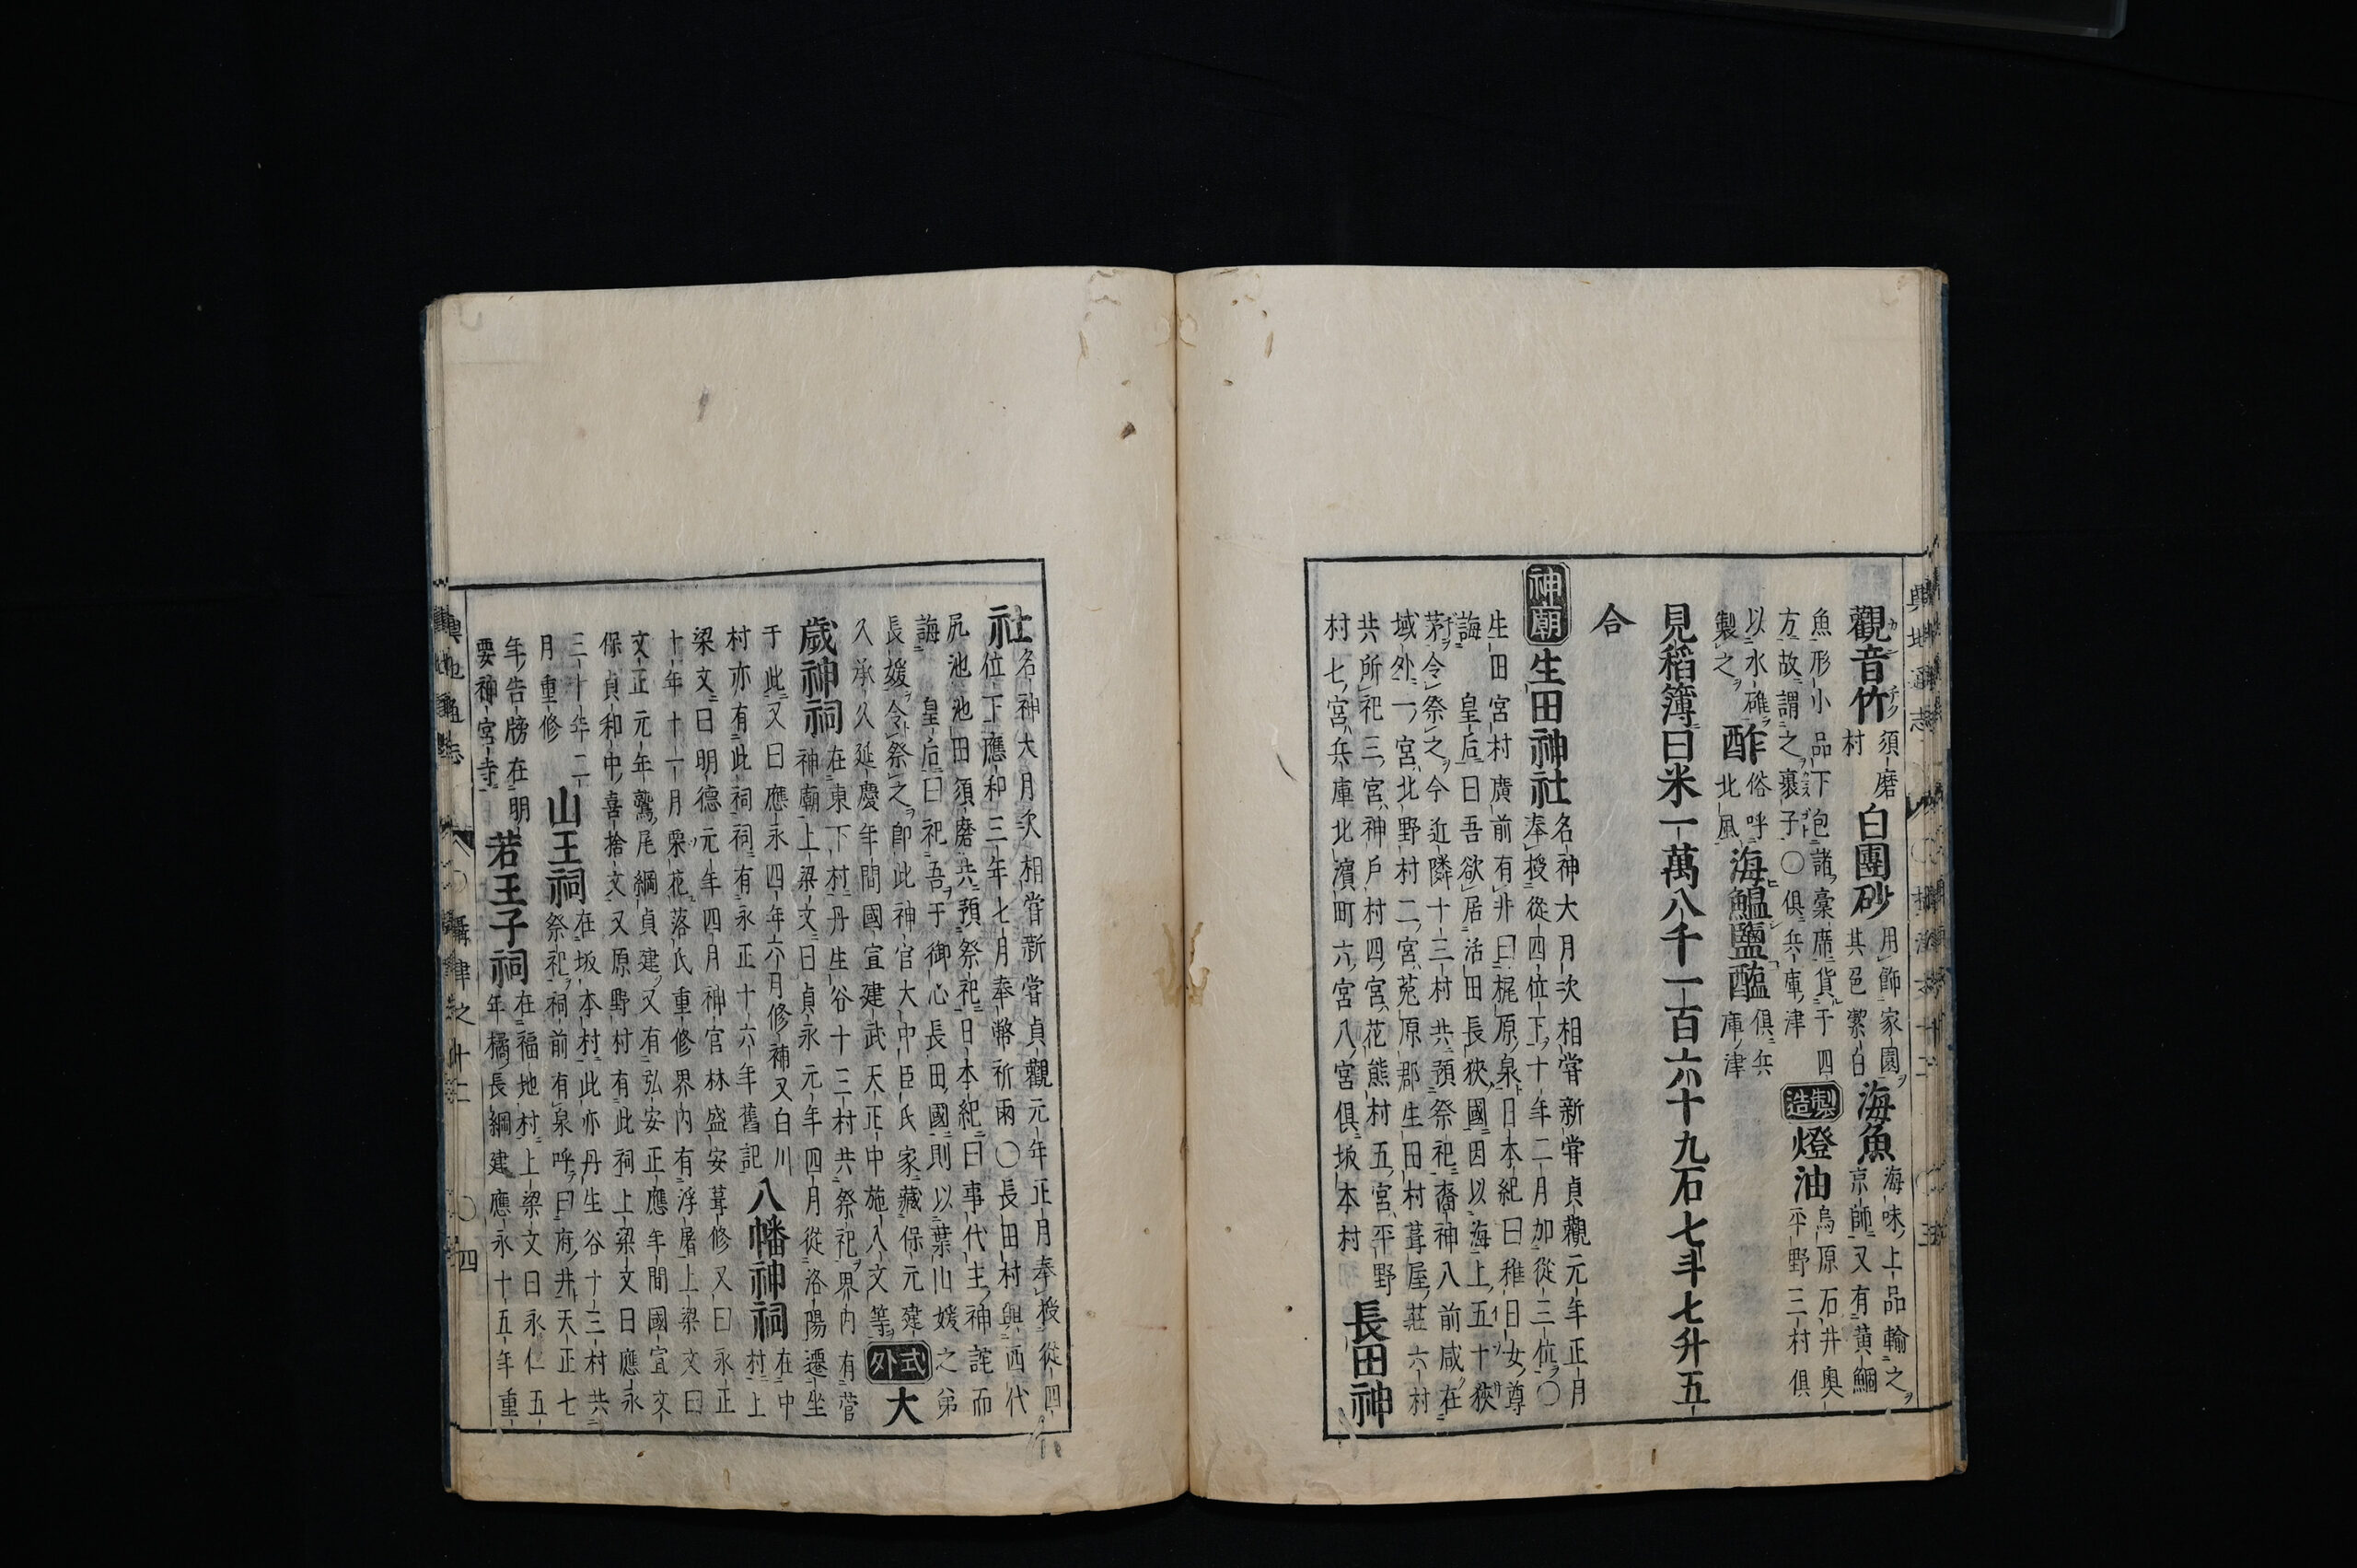 觀音竹 須磨村 白團砂 用飾家園其色潔白 海魚 海味上品輸之京師又有黄鯛
魚形小品下包諸藁席貨于四方故謂之裹子〇俱兵庫津 製造 燈油 烏原石井奥平野三村俱
以水碓製之 酢 俗呼北風 海鰛鹽醢 俱兵庫津
見稻簿曰米一萬八千一百六十九石七斗七升五
合
神廟 生田神社 名神大月次相嘗新嘗貞觀元年正月奉授從四位下十年二月加從三位〇
生田宮村廣前有井曰梶原泉日本紀曰稚日女尊
誨 皇后曰吾欲居活田長狹國因以海上五十狹
茅令祭之今近隣十三村共預祭祀裔神八前咸在
域外一宮北野村二宮菟原郡生田村葺屋莊六村
共所祀三宮神戸村四宮花熊村五宮平野
村七宮兵庫北濱町六宮八宮俱坂本村 長田神
社 名神大月次相嘗新嘗貞觀元年正月奉授從四位下應和三年七月奉幣祈雨〇長田村與西代
尻池池田須磨共預祭祀日本紀曰事代主神託而
誨 皇后曰祀吾于御心長田國則以葉山媛之弟
長媛令祭之卽此神官大中臣氏家藏保元建
久承久延慶年間國宣建武天正中施入文等 式外 大
歲神祠 在東下村丹生谷十三村共祭祀界内有菅神廟上梁文曰貞永元年四月從洛陽遷坐
于此又曰應永四年六月修補又白川
村亦有此祠祠有永正十六年舊記 八幡神祠 在中村上
梁文曰明德元年四月神官林盛安葺修又曰永正
十年十一月栗花落氏重修界内有浮屠上梁文曰
文正元年鷲尾綱貞建又有弘安正應年間國宣文
保貞和中喜捨文又原野村有此祠上梁文曰應永
三十年二月重修 山王祠 在坂本村此亦丹生谷十三村共祭祀祠前有泉呼曰府井天正七
年告牓在明要神宮寺 若王子祠 在福地村上梁文曰永仁五年橘長綱建應永十五年重
輿地通志 攝津之十二 〇四